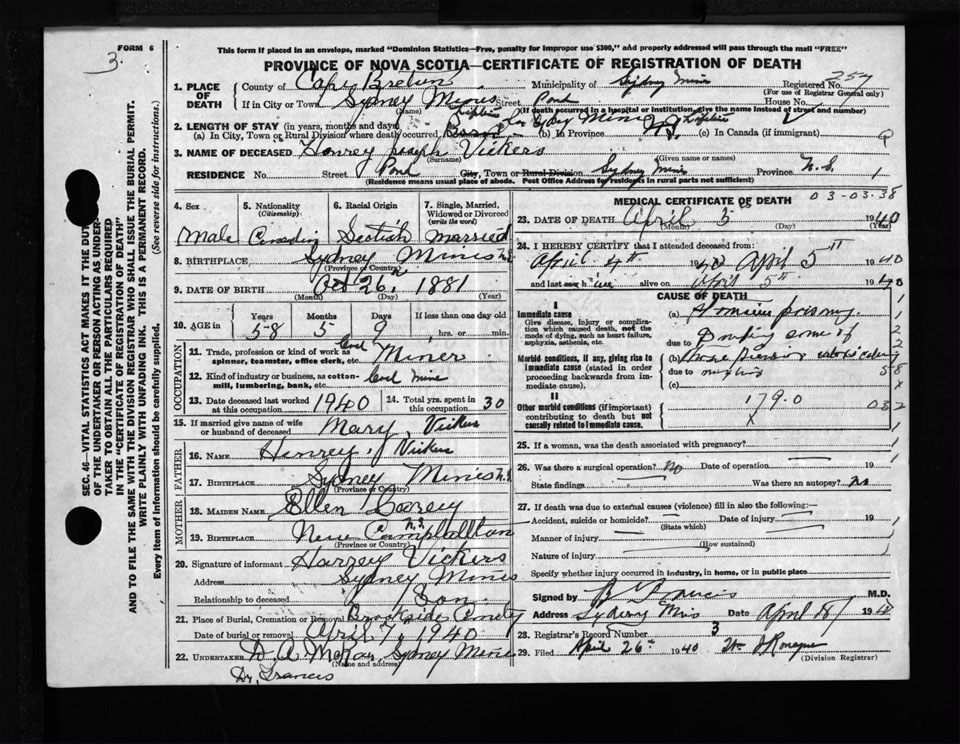 3.
FORM 6
This form if placed in an envelope, marked "Dominion Statistics—Free, penalty for improper use $300," and properly addressed will pass through the mail "FREE"
PROVINCE OF NOVA SCOTIA—CERTIFICATE OF REGISTRATION OF DEATH
SEC. 46—VITAL STATISTICS ACT MAKES IT THE DUTY
OF THE UNDERTAKER OR PERSON ACTING AS UNDER-
TAKER TO OBTAIN ALL THE PARTICULARS REQUIRED
IN THE "CERTIFICATE OF REGISTRATION OF DEATH"
AND TO FILE THE SAME WITH THE DIVISION REGISTRAR WHO SHALL ISSUE THE BURIAL PERMIT.
WRITE PLAINLY WITH UNFADING INK. THIS IS A PERMANENT RECORD.
Every item of Information should be carefully supplied. (See reverse side for instructions.)
1. PLACE OF DEATH County of Cape Breton Municipality of Sydney Mines Registered No. 257
(For use of Registrar General only)
If in City or Town Sydney Mines Street Pond House No.
(Name) (If death occurred in a hospital or institution, give the name instead of street and number)
2. LENGTH OF STAY (in years, months and days)
(a) In City, Town or Rural Division where death occurred Sydney Mines (b) In Province N.S. (c) In Canada (if immigrant)
3. NAME OF DECEASED Henrey Joseph Vickers
(Surname) (Given name or names)
RESIDENCE No. Street Pond City, Town or Rural Division Sydney Mines Province N.S. 1
(Residence means usual place of abode. Post Office Address for residents in rural parts not sufficient)
4. Sex
Male
5. Nationality
(Citizenship)
6. Racial Origin
7. Single, Married,
Widowed or Divorced
(write the word)
married
8. BIRTHPLACE Sydney Mines N.S.
(Province or Country)
9. DATE OF BIRTH Oct 26, 1881
(Month) (Day) (Year)
10. AGE in Years Months Days If less than one day old
58 5 9 hrs. or min.
OCCUPATION
11. Trade, profession or kind of work as
spinner, teamster, office clerk, etc. Coal Miner
12. Kind of industry or business, as cotton-
mill, lumbering, bank, etc. Coal mine
13. Date deceased last worked
at this occupation 1940
14. Total yrs. spent in
this occupation 30
15. If married give name of wife
or husband of deceased Mary Vickers
FATHER
16. NAME Henrey J Vickers
17. BIRTHPLACE Sydney Mines N.S.
(Province or Country)
MOTHER
18. MAIDEN NAME Ellen
19. BIRTHPLACE New Campbellton N.S.
(Province or Country)
20. Signature of informant Harvey Vickers
Address Sydney Mines
Relationship to deceased Son
21. Place of Burial, Cremation or Removal Brookside
Date of burial or removal April 7, 1940
22. UNDERTAKER D. A. Sydney Mines
(Name and address)
Dr. Francis
MEDICAL CERTIFICATE OF DEATH
03-03-38
23. DATE OF DEATH April 5 1940
(Month) (Day) (Year)
24. I HEREBY CERTIFY that I attended deceased from
April 4th 1940 April 5th 1940
and last saw h alive on April 5th 1940
CAUSE OF DEATH
I
Immediate cause
Give disease, injury or complica-
tion which caused death, not the
mode of dying, such as heart failure,
asphyxia, asthenia, etc.
Morbid conditions, if any, giving rise to
immediate cause (stated in order
proceeding backwards from im-
mediate cause).
II
Other morbid conditions (if important)
contributing to death but not
causally related to immediate cause.
(a)
due to
(b)
due to
(c)
179.0 032
X
25. If a woman, was the death associated with pregnancy?
26. Was there a surgical operation? No Date of operation 19
State findings Was there an autopsy? No
27. If death was due to external causes (violence) fill in also the following:—
Accident, suicide or homicide? Date of injury 19
(State which)
Manner of injury
(How sustained)
Nature of injury
Specify whether injury occurred in industry, in home, or in public place
Signed by Francis M.D.
Address Sydney Mines Date April 18
28. Registrar's Record Number 3
29. Filed April 26th 1940
(Division Registrar)